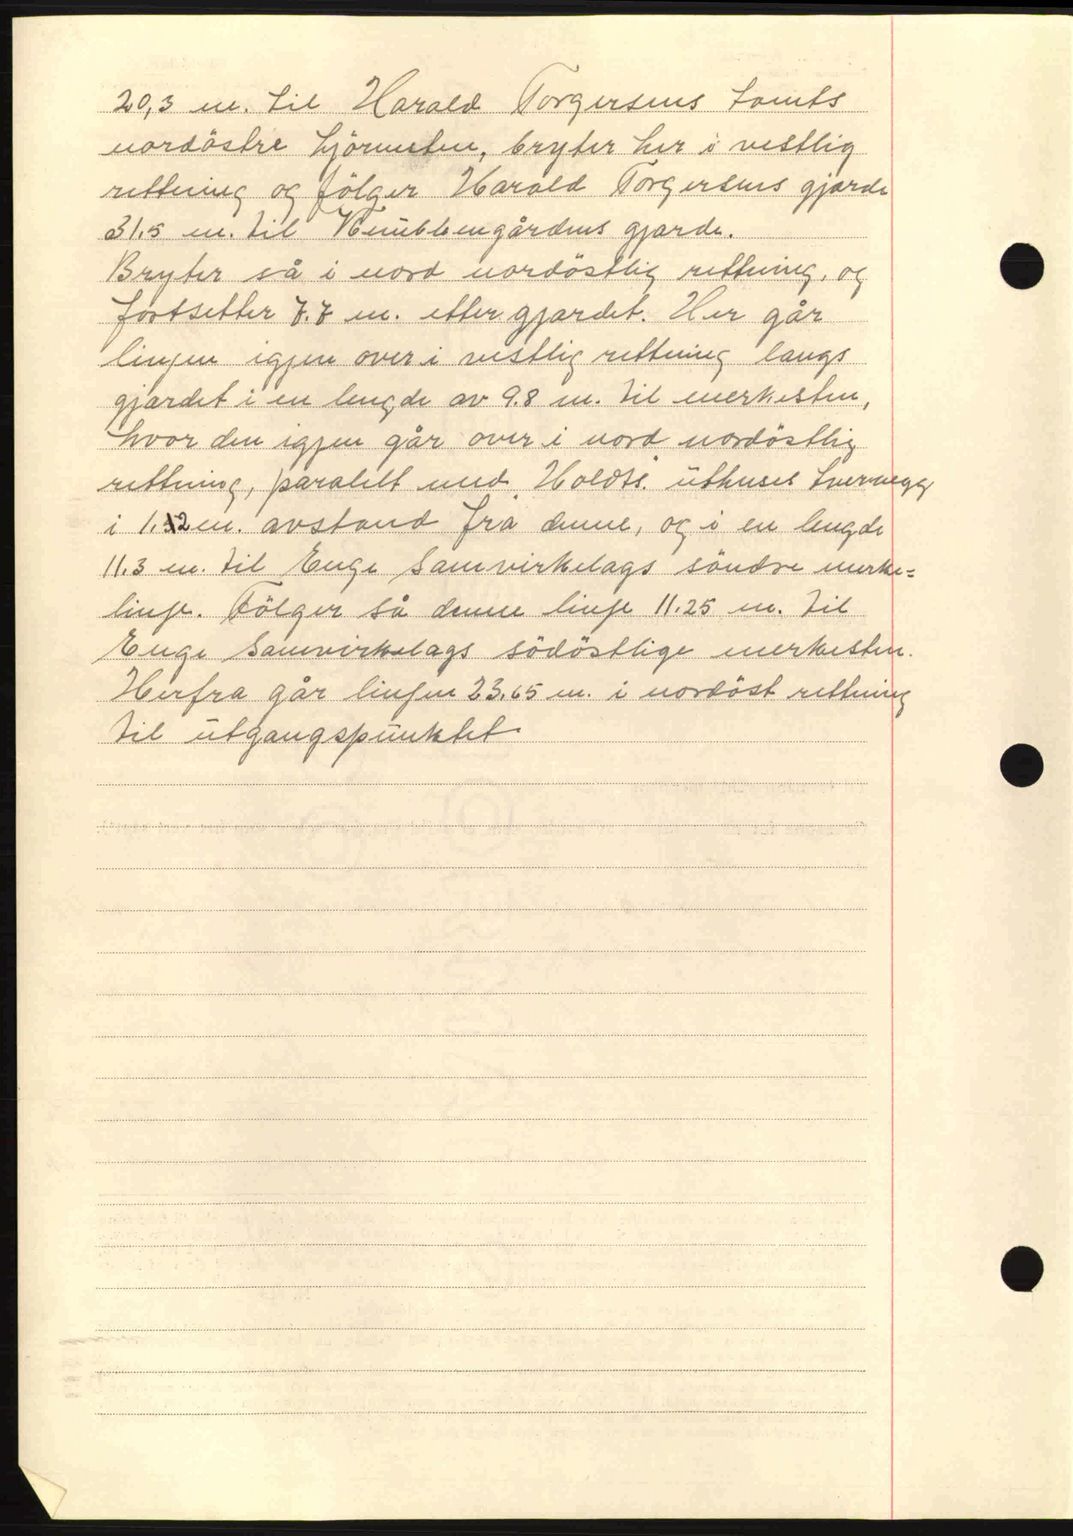 20,3 m. til Harald Torgersens tomts
nordöstre hjörnesten, bryter her i vestlig
rettning og fölger Harald Torgersens gjerde
31.5 m. til Knubbengårdens gjerde.
Bryter så i nord nordöstlig rettning, og
fortsetter 7.7 m. etter gjerdet. Her går
linjen igjen over i vestlig rettning langs
gjerdet i en lengde av 9.8 m. til merkesten,
hvor den igjen går over i nord nordöstlig
rettning, paralelt med Holdts uthuses tverrvegg
i 1.12 m. avstand fra denne, og i en lengde
11.3 m. til Enge Samvirkelags söndre merke=
linje. Fölger så denne linje 11.25 m. til
Enge Samvirkelags södöstlige merkesten.
Herfra går linjen 23.65 m. i nordöst rettning
til utgangspunktet